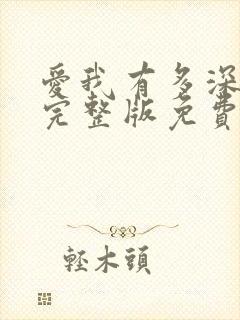 愛我有多深
完整版免費
輕木頭